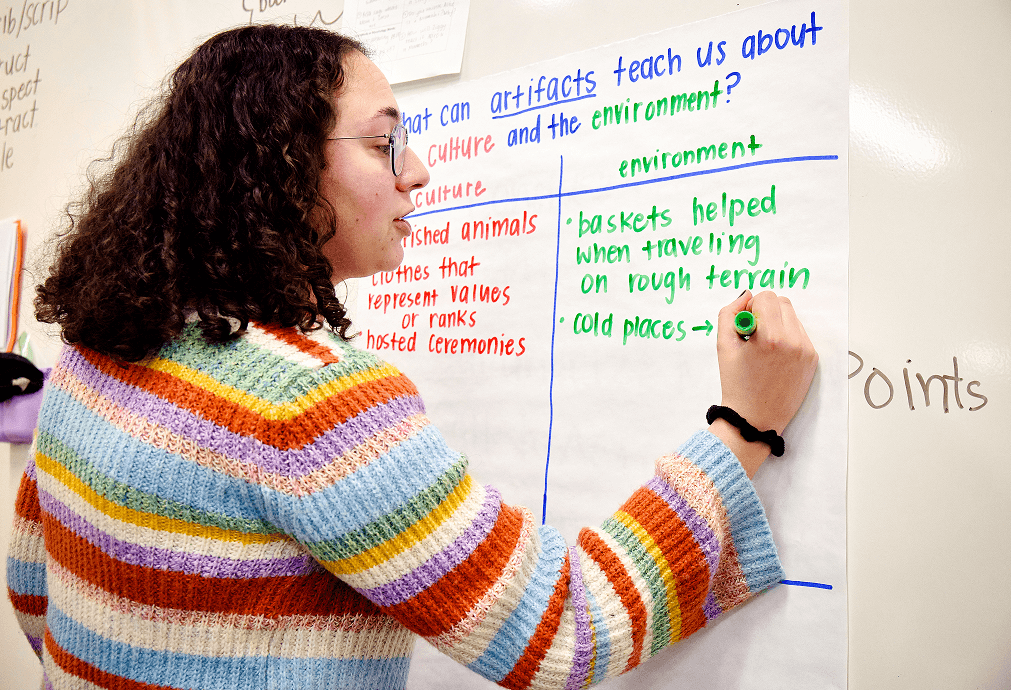 ib/scrip
uct
spect
tract
le
hat can artifacts teach us about
culture and the environment?
culture
rished animals
clothes that
represent values
or ranks
hosted ceremonies
environment
• baskets helped
when traveling
on rough terrain
• cold places →
Points